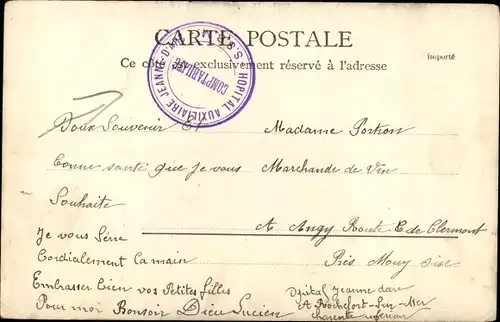 CARTE POSTALE
Ce côté est exclusivement réservé à l'adresse
Importé
HOPITAL AUXILIAIRE JEANNE-D'ARC
COMPTABILITÉ
Doux Souvenir Et
Bonne santé que je vous
Souhaite
Je vous Sére
Cordialement La main
Embasser bien vos Petites filles
Pour moi Bonsoir Dieu Lucien
Madame Porkon
Marchande de Vin
A Angy Route de Clermont
Près Mouy Oise
Opital Jeanne darc
A Rochefort-Sur-Mer
charente inferieur